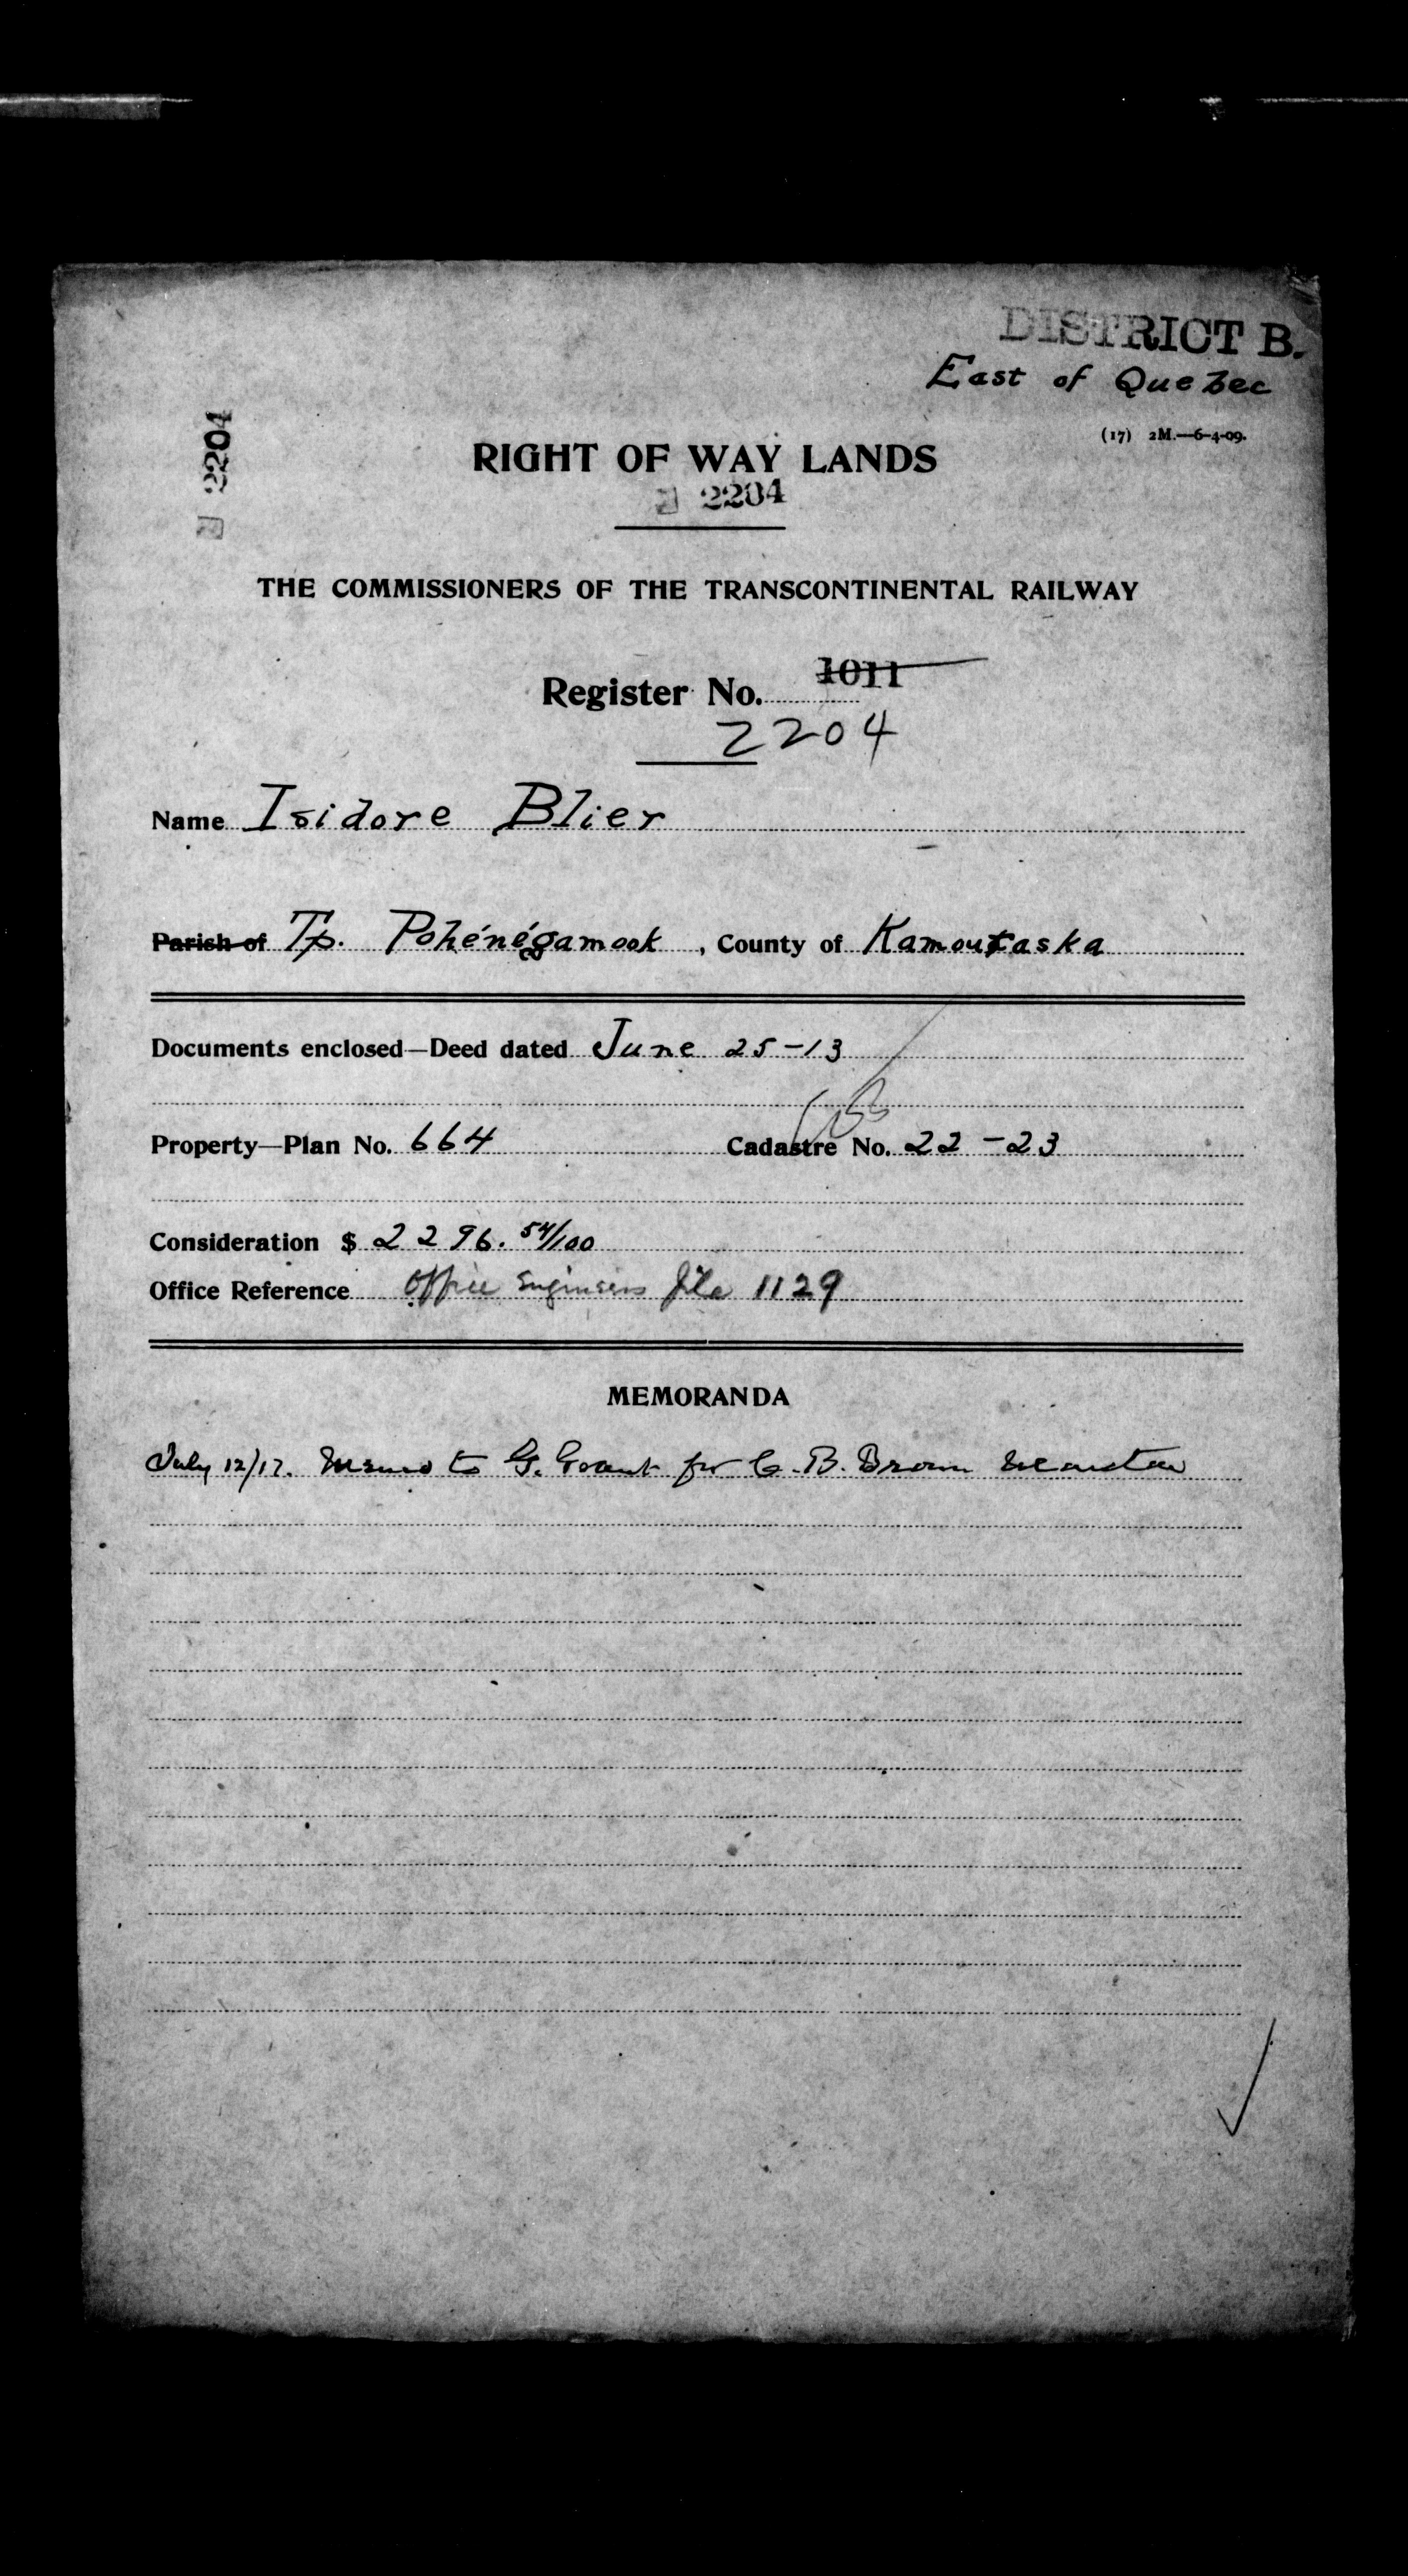 DISTRICT B.
East of Quebec
(17) 2M.—6-4-09.
2204
RIGHT OF WAY LANDS
2204
THE COMMISSIONERS OF THE TRANSCONTINENTAL RAILWAY
Register No. 1011
2204
Name Isidore Blier
Parish of Tp. Pohénégamook, County of Kamouraska
Documents enclosed—Deed dated June 25-13
Property—Plan No. 664 Cadastre No. 22-23
Consideration $ 2296.54/100
Office Reference Office Engineers file 1129
MEMORANDA
July 12/17. Memo to G. Grant for C.B. Brown